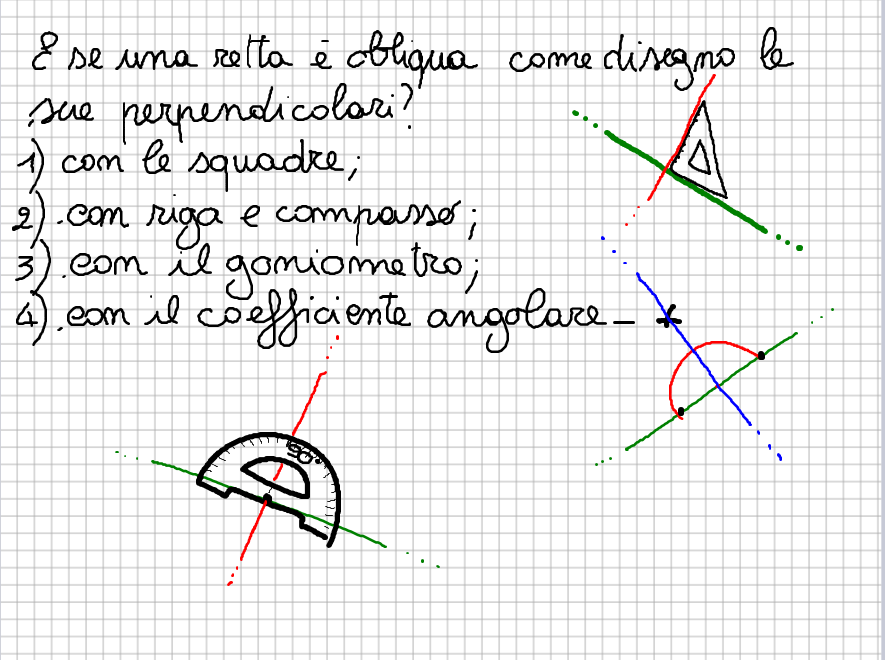 E se una retta è obliqua come disegno le
sue perpendicolari?
1) con le squadre;
2) con riga e compasso;
3) con il goniometro;
4) con il coefficiente angolare
90°